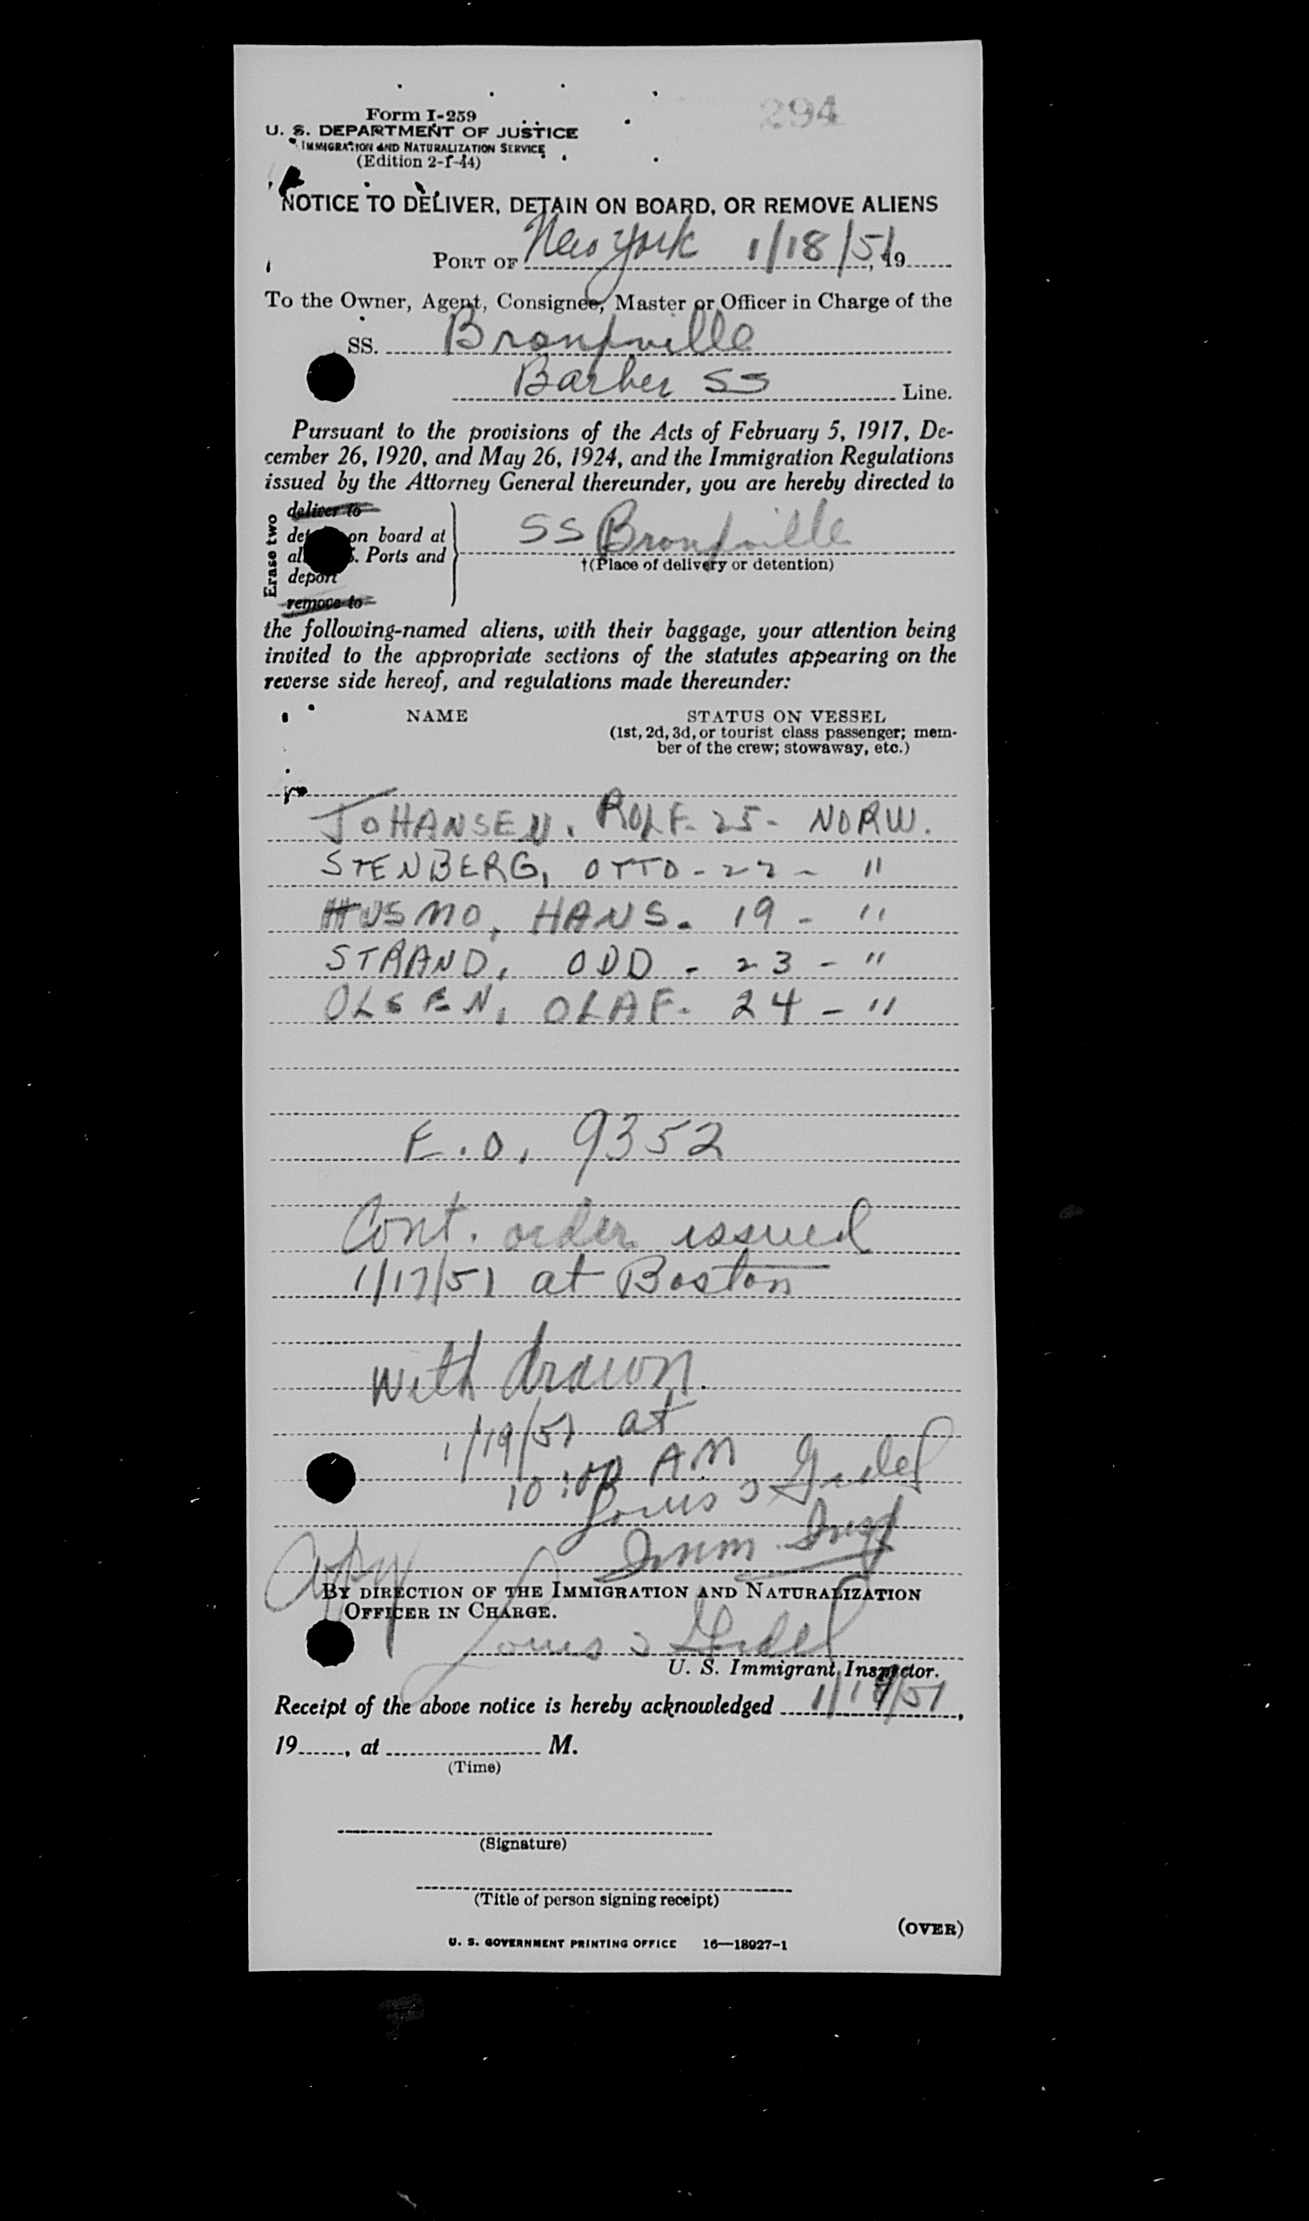 294
Form I-259
U. S. DEPARTMENT OF JUSTICE
IMMIGRATION AND NATURALIZATION SERVICE
(Edition 2-1-44)
NOTICE TO DELIVER, DETAIN ON BOARD, OR REMOVE ALIENS
PORT OF New York 1/18/51, 19
To the Owner, Agent, Consignee, Master or Officer in Charge of the
SS. Bronxville
Barber SS Line.
Pursuant to the provisions of the Acts of February 5, 1917, De-
cember 26, 1920, and May 26, 1924, and the Immigration Regulations
issued by the Attorney General thereunder, you are hereby directed to
Erase two
deliver to
on board at
Ports and
deport
remove to
SS Bronxville
†(Place of delivery or detention)
the following-named aliens, with their baggage, your attention being
invited to the appropriate sections of the statutes appearing on the
reverse side hereof, and regulations made thereunder:
NAME STATUS ON VESSEL
(1st, 2d, 3d, or tourist class passenger; mem-
ber of the crew; stowaway, etc.)
JOHANSEN, ROLF - 25 - NORW.
STENBERG, OTTO - 22 - "
HUSMO, HANS - 19 - "
STRAND, ODD - 23 - "
OLSEN, OLAF - 24 - "
E.O. 9352
Cont. order issued
1/17/51 at Boston
with drawn.
1/19/51 at
10:00 AM
Louis Gidel
Imm. Insp
Copy
BY DIRECTION OF THE IMMIGRATION AND NATURALIZATION
OFFICER IN CHARGE.
Louis Gidel
U. S. Immigrant Inspector.
Receipt of the above notice is hereby acknowledged 1/18/51,
19, at M.
(Time)
(Signature)
(Title of person signing receipt)
(OVER)
U. S. GOVERNMENT PRINTING OFFICE 16—18927-1